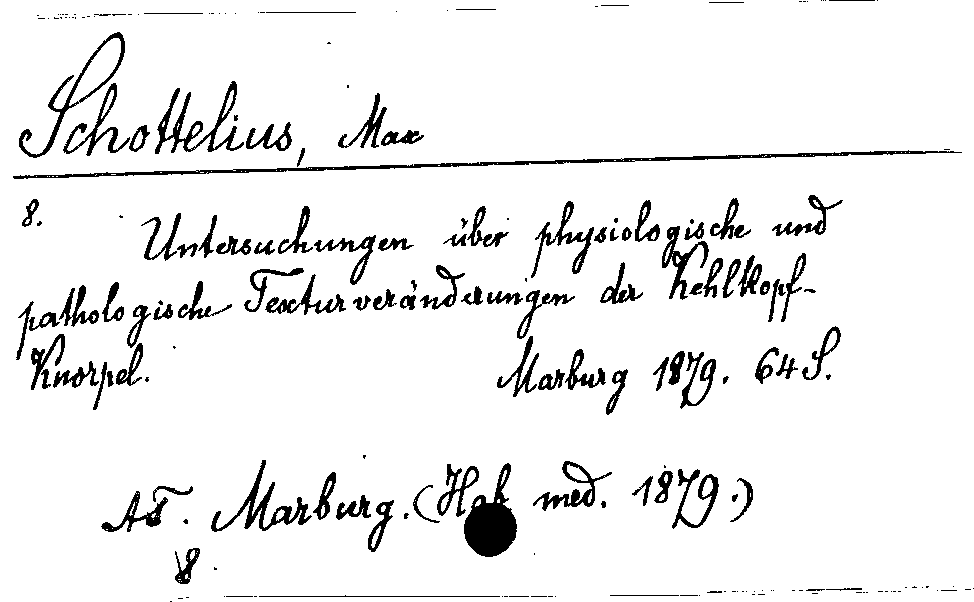 Schottelius, Max
8. Untersuchungen über physiologische und
pathologische Texturveränderungen der Kehlkopf-
Knorpel. Marburg 1879. 64 S.
AT. Marburg. (Hab med. 1879.)
8